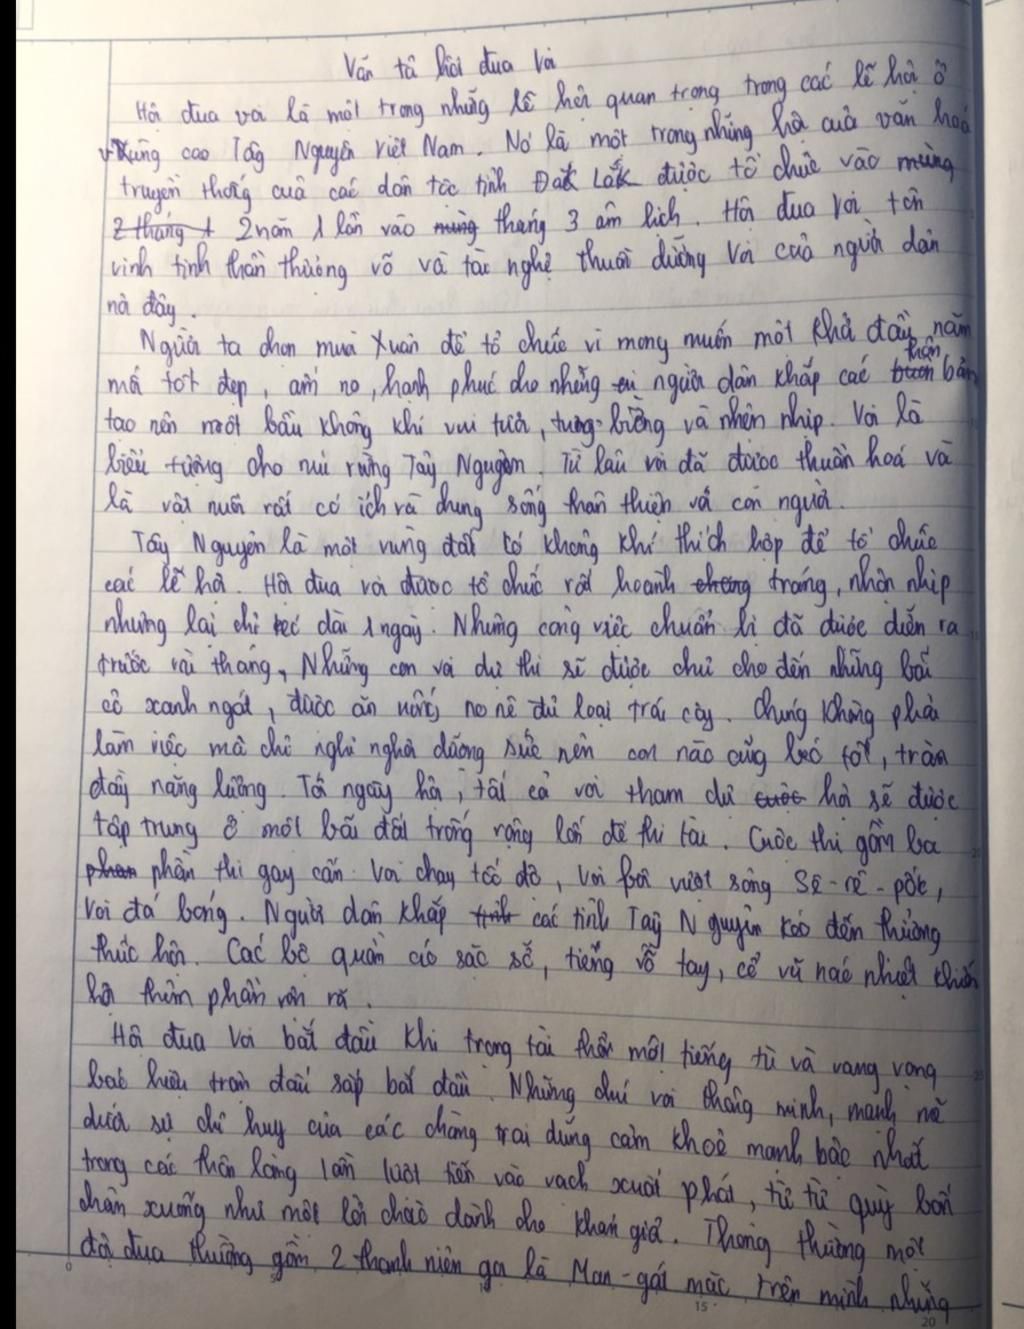 Văn tả hội đua voi
Hội đua voi là một trong những lễ hội quan trọng trong các lễ hội ở
vùng cao Tây Nguyên Việt Nam. Nó là một trong những hội của văn hoá
truyền thống của các dân tộc tỉnh Đắk Lắk được tổ chức vào mùng
2 tháng 1 2 năm 1 lần vào mùng tháng 3 âm lịch. Hội đua voi tôn
vinh tinh thần thượng võ và tài nghệ thuần dưỡng voi của người dân
nơi đây.
Người ta chọn mùa xuân để tổ chức vì mong muốn một khởi đầu năm
mới tốt đẹp, ấm no, hạnh phúc cho những người dân khắp các buôn thôn bản
tạo nên một bầu không khí vui tươi, tưng bừng và nhộn nhịp. Voi là
biểu tượng cho núi rừng Tây Nguyên. Từ lâu voi đã được thuần hoá và
là vật nuôi rất có ích và chung sống thân thiện với con người.
Tây Nguyên là một vùng đất có không khí thích hợp để tổ chức
các lễ hội. Hội đua voi được tổ chức rất hoành tráng, nhộn nhịp
nhưng lại chỉ kéo dài 1 ngày. Những công việc chuẩn bị đã được diễn ra
trước vài tháng, Những con voi dự thi sẽ được chủ cho đến những bãi
cỏ xanh ngát, được ăn uống no nê đủ loại trái cây. Chúng không phải
làm việc mà chỉ nghỉ ngơi dưỡng sức nên con nào cũng béo tốt, tràn
đầy năng lượng. Tới ngày hội, tất cả voi tham dự cuộc hội sẽ được
tập trung ở một bãi đất trống rộng lớn để thi tài. Cuộc thi gồm ba
phần phần thi gay cấn. Voi chạy tốc độ, voi bơi vượt sông Sê-rê-pốk,
Voi đá bóng. Người dân khắp tỉnh các tỉnh Tây Nguyên kéo đến thưởng
thức hội. Các bộ quần áo sặc sỡ, tiếng vỗ tay, cổ vũ náo nhiệt khiến
hội thêm phần rôn rã.
Hội đua voi bắt đầu khi trọng tài thổi một tiếng tù và vang vọng
báo hiệu trận đấu sắp bắt đầu. Những chú voi thông minh, mạnh mẽ
dưới sự chỉ huy của các chàng trai dũng cảm khoẻ mạnh bậc nhất
trong các thôn làng lần lượt tiến vào vạch xuất phát, từ từ quỳ bốn
chân xuống như một lời chào dành cho khán giả. Thông thường một
đội đua thường gồm 2 thanh niên gọi là Man-gát mặc trên mình những
15
20